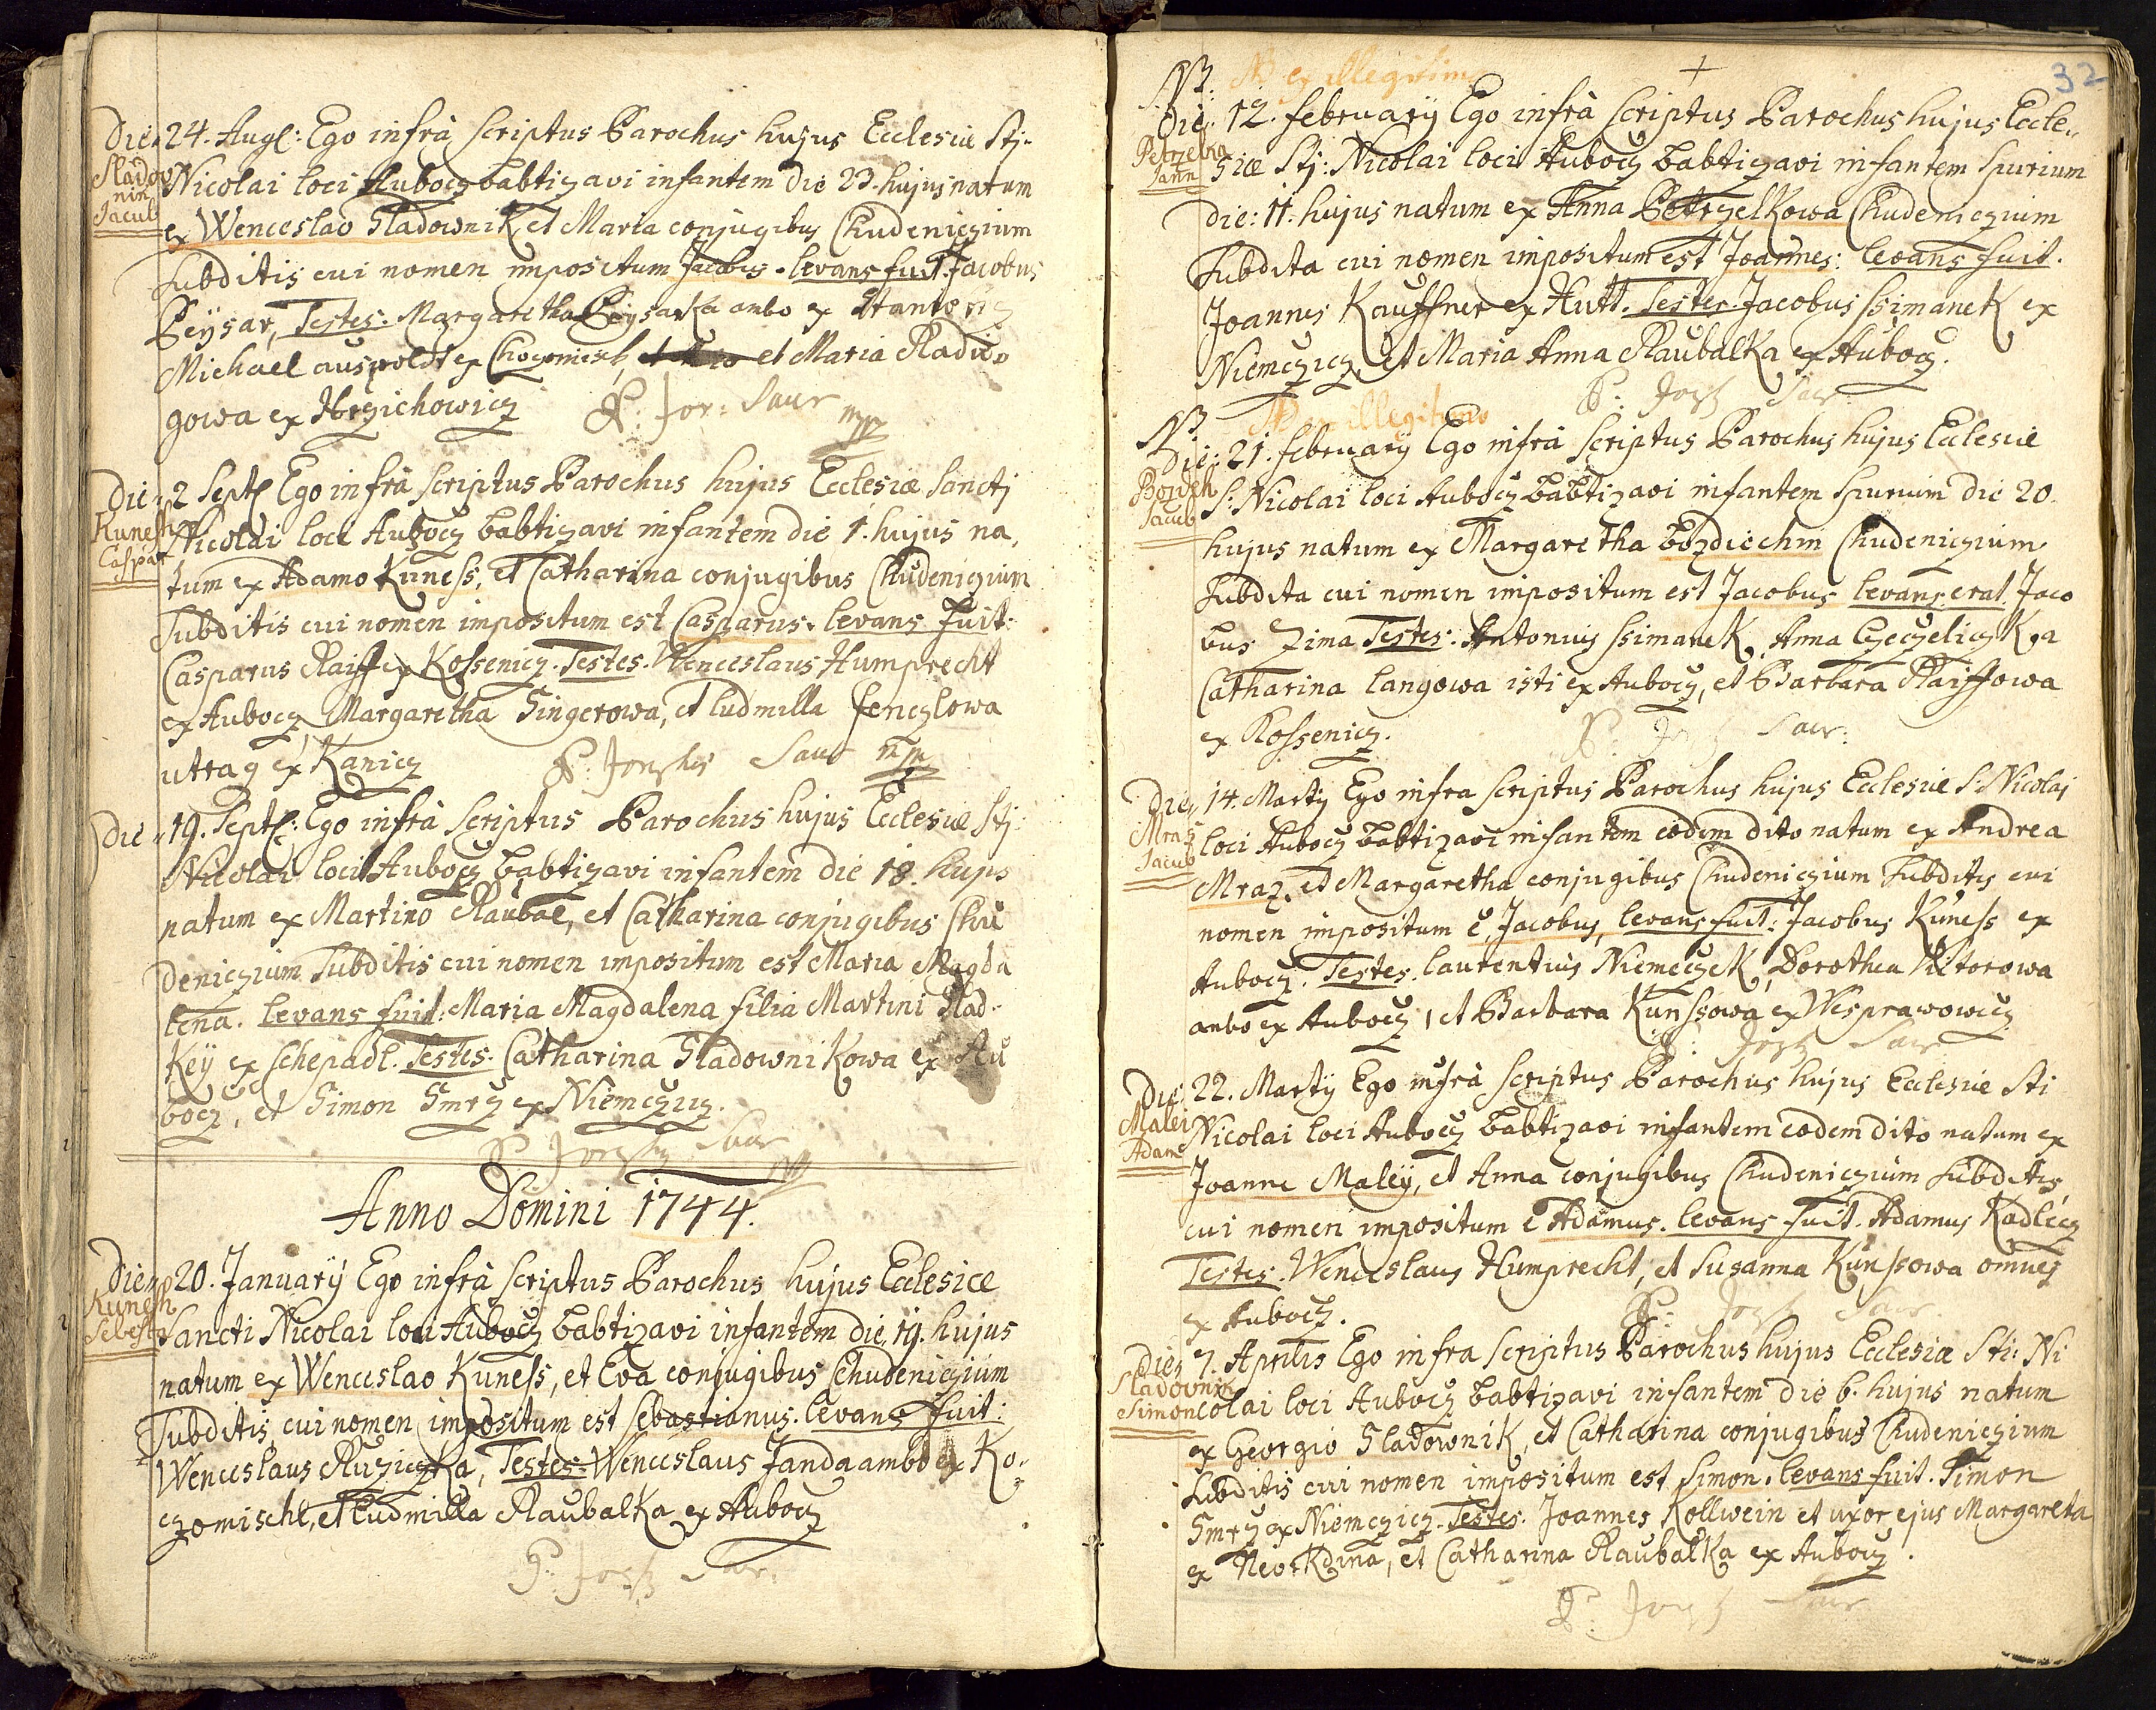 Die 24. Augl: Ego infrà scriptus Parochus hujus Ecclesiæ Stj.
Sladov
nik
Jacub
Nicolai loci Aubocz babtizavi infantem die 23. hujus natum
ex Wenceslao Sladownik, et Maria conjugibus Chudeniczium
Subditis cui nomen impositum Jacobus. levans fuit Jacobus
Peÿsar, Testes: Margaretha Peysarka ambo ex
Michael auspoldt ex et Maria Radu-
gowa ex Hrzichowicz P: Jos: Saur mp
Die 2 Septl Ego infrà scriptus Parochus hujus Ecclesiæ Sanctj
Kunesh
Caspar
Nicolai loci Aubocz babtizavi infantem die 1. hujus na,
tum ex Adamo Kuness, et Catharina conjugibus Chudeniczium
Subditis cui nomen impositum est Casparus. levans fuit:
Casparus Raiff ex Kossenicz. Testes. Wenceslaus Humprecht
ex Aubocz Margaretha Singerowa, et Ludmilla fenczlowa
utraq ex Kanicz P: Josephus Saur mp
Die 19. Septl: Ego infrà scriptus Parochus hujus Ecclesiæ Stj:
Nicolai loci Aubocz babtizavi infantem die 18. hujus
natum ex Martino Raubal, et Catharina conjugibus Chu
deniczium Subditis cui nomen impositum est Maria Magda
lena. levans fuit: Maria Magdalena filia Martini Slad-
keÿ ex Schepadl. Testes. Catharina Sladownikowa ex Au
bocz, et Simon Smrz ex Niemczicz.
P Joseph Saur
Anno Domini 1744.
Die 20. Januarÿ Ego infrà scriptus Parochus hujus Ecclesiæ
Kunesh
Sebest
Sancti Nicolai loci Aubocz babtizavi infantem die 19. hujus
natum ex Wenceslao Kuness, et Eva conjugibus Chudeniczium
Subditis cui nomen impositum est Sebastianus. levans fuit:
Wenceslaus Ruziczka, Testes: Wenceslaus Janda ambo ex Ko-
czomischl, et Ludmilla Raubalka ex Aubocz
P: Joseph Saur.
32
NB: NB ex illegitim
Die 12. februarÿ Ego infrà scriptus Parochus hujus Eccle,,
Petrzelka
Jann
siæ Stj: Nicolai loci Aubocz babtizavi infantem spurium
die: 11. hujus natum ex Anna Petrzelkowa Chudeniczium
Subdita cui nomen impositum est Joannes: levans fuit.
Joannes Kauffner ex Hutt. Testes. Jacobus Ssimanek ex
Niemczicz, et Maria Anna Raubalka ex Aubocz.
P: Joseph Saur.
NB NB ex illegitimo
Die: 21. februarÿ Ego infrà scriptus Parochus hujus Ecclesiæ
Bozdeh
Jacub
S: Nicolai loci Aubocz babtizavi infantem spurium die 20
hujus natum ex Margaretha bozdiechin Chudeniczium
Subdita cui nomen impositum est Jacobus levans erat. Jaco
bus Zima Testes: Antonius Ssimanek, Anna Czeczeliczka
Catharina langowa isti ex Aubocz, et Barbara Raiffowa
ex Kossenicz. P. Joseph Saur:
Die 14. Martÿ Ego infra scriptus Parochus hujus Ecclesiæ S: Nicolaj
Mraz
Jacub
loci Aubocz babtizavi infantem eodem dito natum ex Andrea
Mraz, et Margaretha conjugibus Chudeniczium Subditis cui
nomen impositum ē Jacobus, levans fuit: Jacobus Kuness ex
Aubocz. Testes. laurentius Niemeczek, Dorothea Victorowa
ambo ex Aubocz, et Barbara Kunssowa ex Wesprawowicz.
P: Joseph Saur
Die: 22. Martÿ Ego infrà scriptus Parochus hujus Ecclesiæ Sti
Malei
Adam
Nicolai loci Aubocz babtizavi infantem eodem dito natum ex
Joanne Maleÿ, et Anna conjugibus Chudeniczium Subditis,
cui nomen impositum ē Adamus. levans fuit. Adamus Kadlecz
Testes. Wenceslaus Humprecht, et Susanna Kunssowa omnes
ex Aubocz. P: Joseph Saur.
Die 7. Aprilis Ego infra scriptus Parochus hujus Ecclesiæ Sti: Ni
Sladovnik
Simon
colai loci Aubocz babtizavi infantem die 6. hujus natum
ex Georgio Sladownik, et Catharina conjugibus Chudeniczium
Subditis cui nomen impositum est Simon. levans fuit. Simon
Smrz ex Niemczicz. Testes. Joannes Kollwein et uxor ejus Margareta
ex Neo-Kdina, et Catharina Raubalka ex Aubocz.
P: Joseph Saur